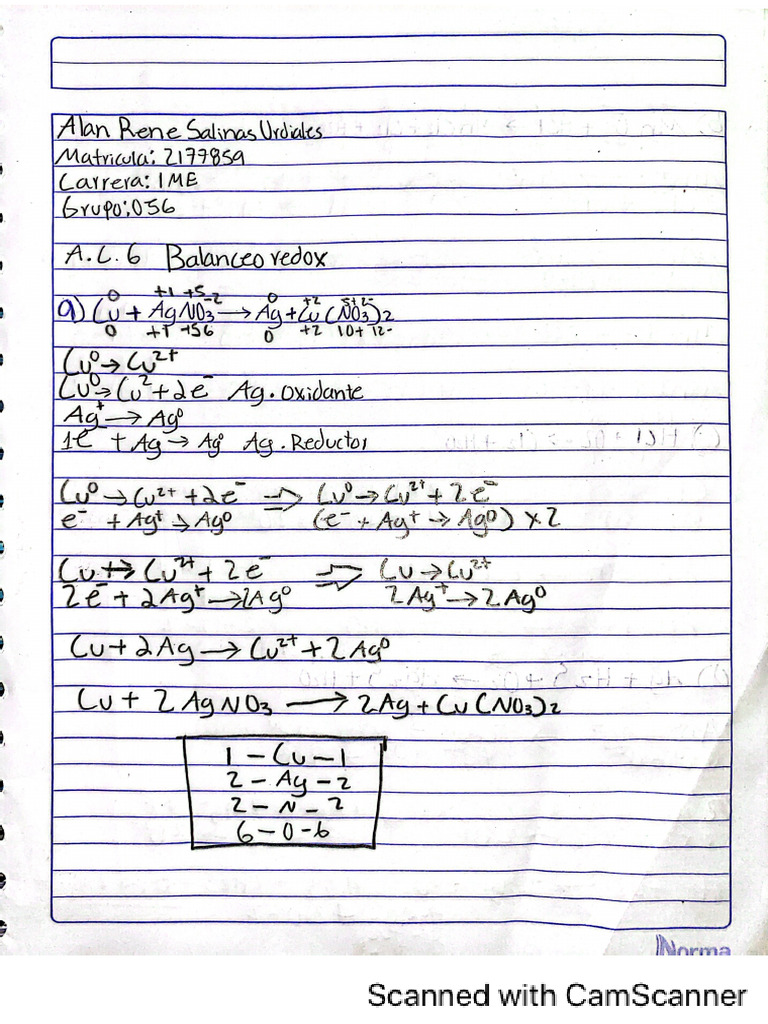 Alan Rene Salinas Urdiales
Matricula: 2177859
Carrera: IME
Grupo: 056
A.C. 6 Balanceo redox
0 +1 +5 -2 0 +2 5+ 2-
a) Cu + AgNO3 → Ag + Cu(NO3)2
0 +1 +5 6 0 +2 10+ 12-
Cu⁰ → Cu²⁺
Cu⁰ → Cu² + 2e⁻ Ag. Oxidante
Ag⁺ → Ag⁰
1e⁻ + Ag → Ag⁰ Ag. Reductor
Cu⁰ → Cu²⁺ + 2e⁻ ⇒ Cu⁰ → Cu²⁺ + 2e⁻
e⁻ + Ag⁺ → Ag⁰ (e⁻ + Ag⁺ → Ag⁰) x 2
Cu → Cu²⁺ + 2e⁻ ⇒ Cu → Cu²⁺
2e⁻ + 2Ag⁺ → 2Ag⁰ 2Ag⁺ → 2Ag⁰
Cu + 2Ag → Cu²⁺ + 2Ag⁰
Cu + 2AgNO3 → 2Ag + Cu(NO3)2
1 - Cu - 1
2 - Ag - 2
2 - N - 2
6 - O - 6
Norma
Scanned with CamScanner